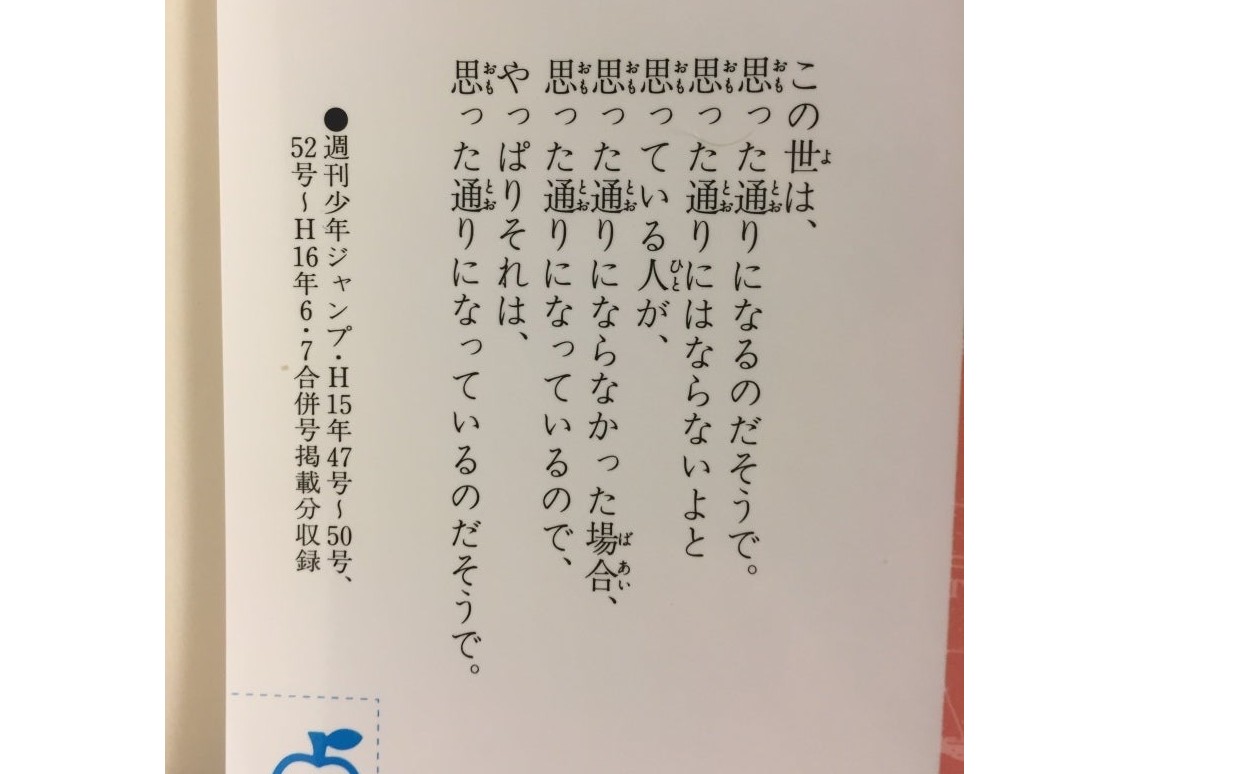 この世は、
思った通りになるのだそうで。
思った通りにはならないよと
思っている人が、
思った通りにならなかった場合、
思った通りになっているので、
やっぱりそれは、
思った通りになっているのだそうで。
●週刊少年ジャンプ・H15年47号～50号、
52号～H16年6・7合併号掲載分収録